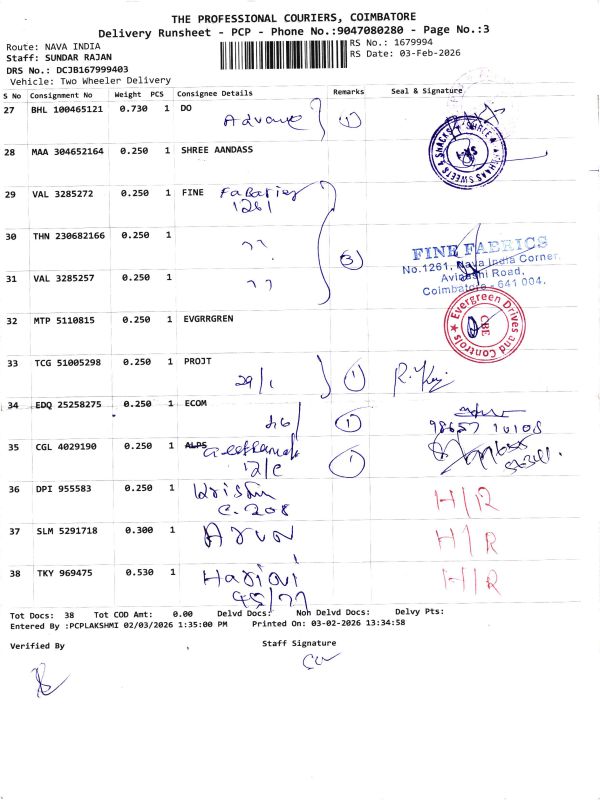 THE PROFESSIONAL COURIERS, COIMBATORE
Delivery Runsheet - PCP - Phone No.:9047080280 - Page No.:3
Route: NAVA INDIA
RS No.: 1679994
Staff: SUNDAR RAJAN
RS Date: 03-Feb-2026
DRS No.: DCJB167999403
Vehicle: Two Wheeler Delivery
S No Consignment No Weight PCS Consignee Details Remarks Seal & Signature
27 BHL 100465121 0.730 1 DO
1
28 MAA 304652164 0.250 1 SHREE AANDASS
29 VAL 3285272 0.250 1 FINE
1261
30 THN 230682166 0.250 1
3
FINE FABRICS
No.1261, Nava India Corner,
Avinashi Road,
Coimbatore - 641 004.
31 VAL 3285257 0.250 1
32 MTP 5110815 0.250 1 EVGRRGREN
Evergreen Drives and Controls
CBE
33 TCG 51005298 0.250 1 PROJT
29/1 1
34 EDQ 25258275 0.250 1 ECOM
1
98657 10108
35 CGL 4029190 0.250 1 ALPS
12/C 1
36 DPI 955583 0.250 1
C. 208 H/R
37 SLM 5291718 0.300 1 Arun H/R
38 TKY 969475 0.530 1 Harini H/R
95/77
Tot Docs: 38 Tot COD Amt: 0.00 Delvd Docs: Non Delvd Docs: Delvy Pts:
Entered By :PCPLAKSHMI 02/03/2026 1:35:00 PM Printed On: 03-02-2026 13:34:58
Verified By Staff Signature